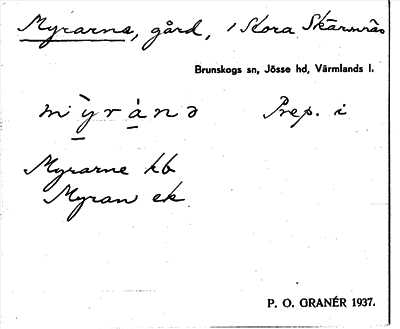 Myrarna, gård, i Stora Skärmnäs
Brunskogs sn, Jösse hd, Värmlands l.
mỳrànə Prep. i
Myrarne kb
Myran ek
P. O. GRANÉR 1937.